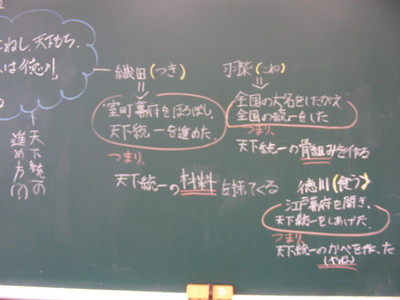 こねし、天下もち、
は徳川」
天下統一の
進め方(?)
織田(つき)
室町幕府をほろぼし、
天下統一を進めた
つまり、
天下統一の材料を採ってくる
羽柴(こね)
全国の大名をしたがえ
全国の統一をした
つまり、
天下統一の骨組みを作る
徳川(食う)
江戸幕府を開き、
天下統一をしあげた
つまり
天下統一のかべを作った